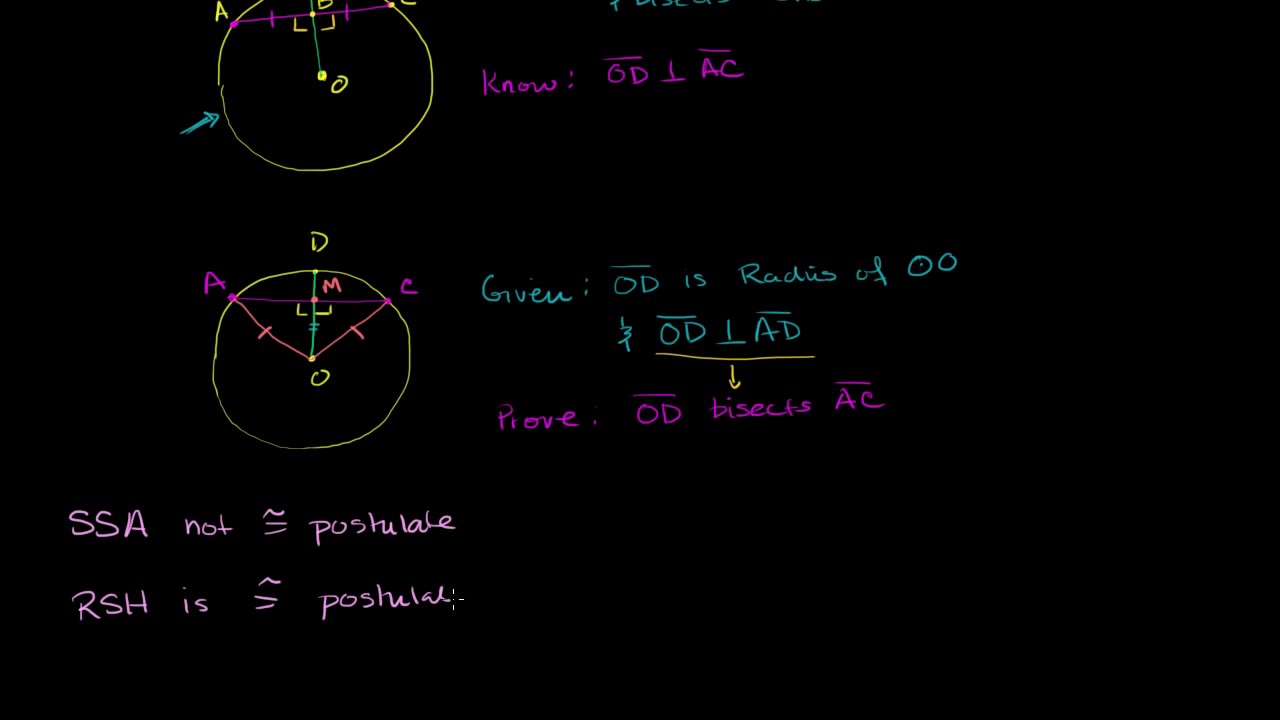 A
O
Know: OD ⊥ AC
D
A M C
O
Given: OD is Radius of ⊙O
& OD ⊥ AD
Prove: OD bisects AC
SSA not ≅ postulate
RSH is ≅ postulat